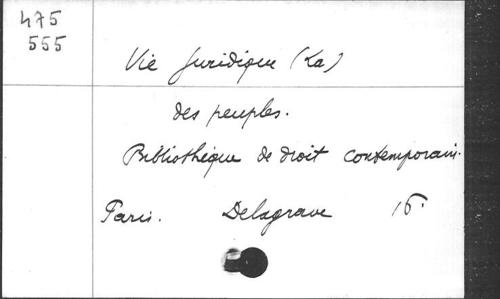 475
555
Vie Juridique (La)
des peuples.
Bibliothèque de droit contemporain.
Paris. Delagrave 16°.